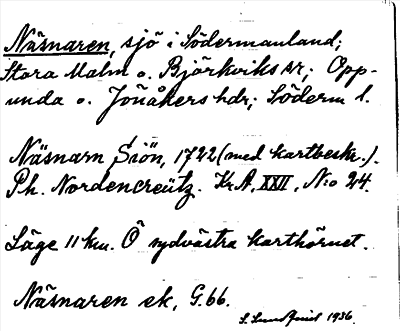 Näsnaren, sjö i Södermanland;
Stora Malm o. Björkviks sr; Opp-
unda o. Jönåkers hdr; Söderm l.
Näsnarn Siön, 1722 (med kartbeskr.).
Ph. Nordencreütz. Kr.A. XXII, N:o 24.
Läge 11 km. Ö sydvästra karthörnet.
Näsnaren ek, G.66.
S. Lundquist 1936.